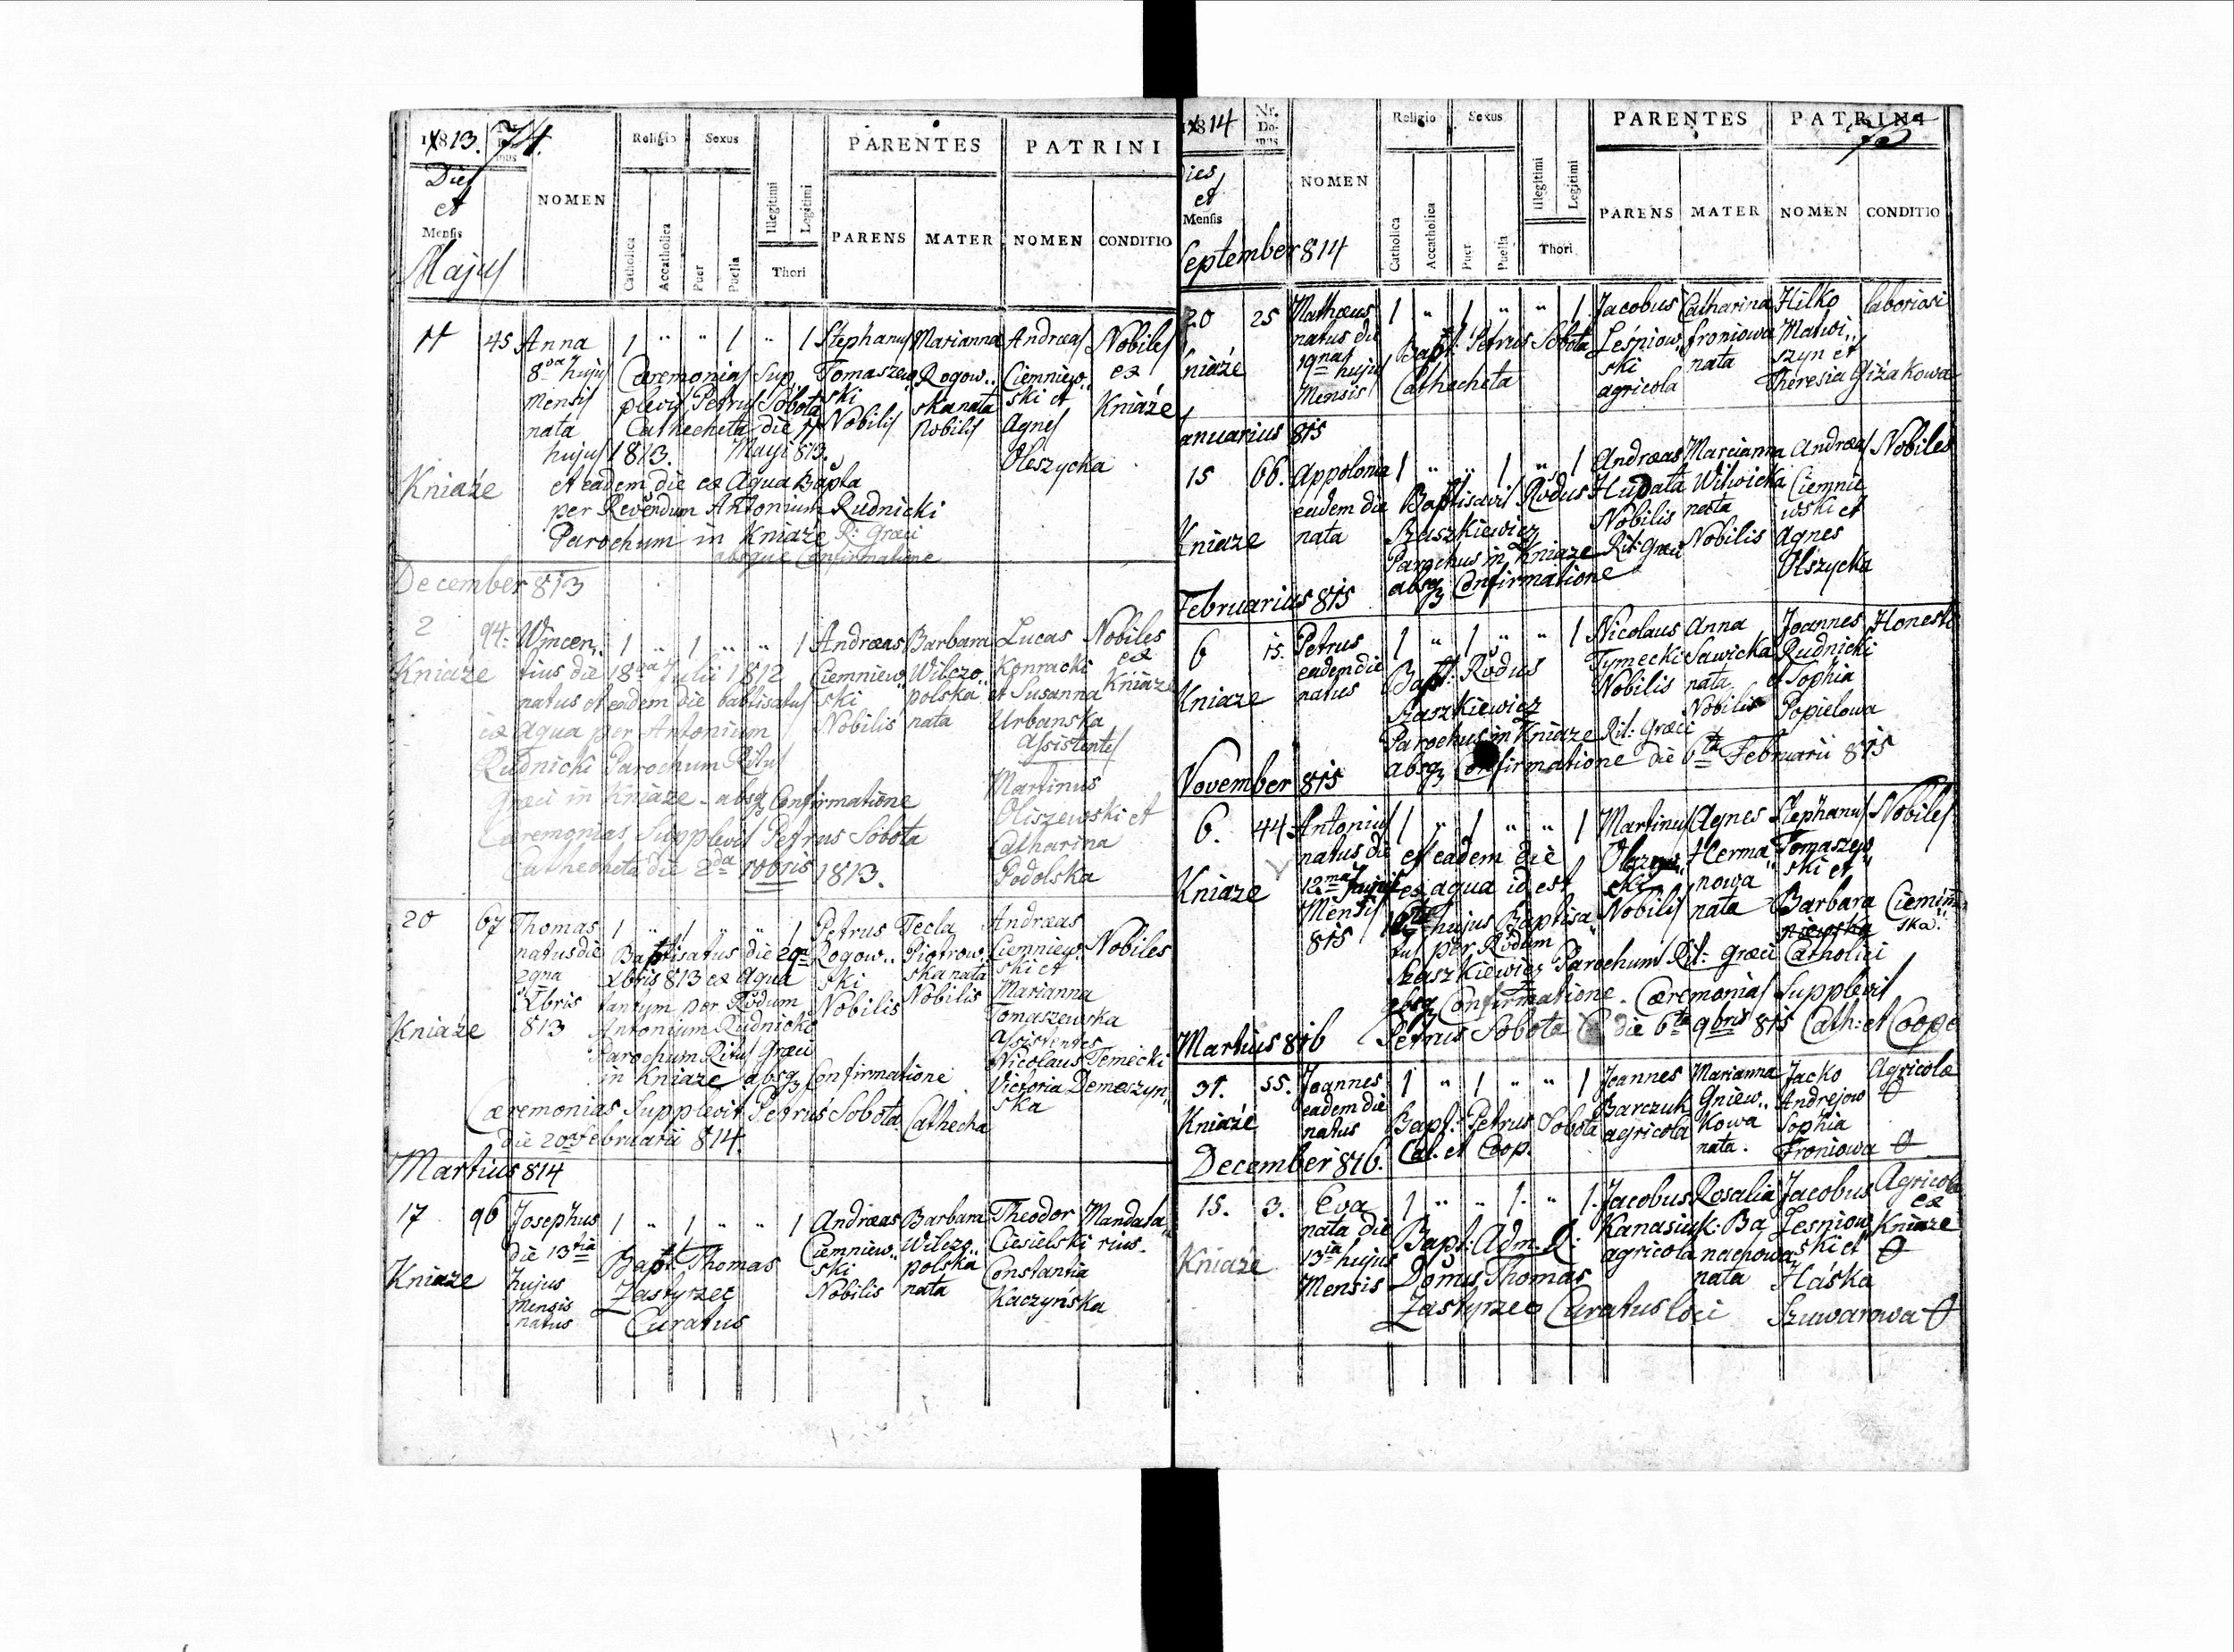 1813. Nr. Domus 74.
Dies et Mensis NOMEN Religio Sexus PARENTES PATRINI
Catholica Accatholica Puer Puella Illegitimi Legitimi Thori PARENS MATER NOMEN CONDITIO
Majus
11 45 Anna 1 " " 1 " 1 Stephanus Marianna Andreas Nobiles
8va hujus Cæremonias Sup Tomaszew Rogow.. Ciemniew.. ex
mensis plevit Petrus Sobota ski ska nata ski et Kniaże
nata Cathecheta die 11 Nobilis Nobilis Agnes
hujus 1813. Maji 813. Oleszycka
Kniaże et eadem die ex Aqua Bapta
per Revendum Antonium Rudnicki
Parochum in Kniaże R: Græci
absque Confirmatione
December 813
2 94. Wincen.. 1 " 1 " " 1 Andreas Barbara Lucas Nobiles
Kniaże tius die 18va Julii 1812 Ciemniew.. Wilczo.. Konracki ex
natus et eadem die babtisatus ski polska et Susanna Kniaże
ex Aqua per Antonium Nobilis nata Urbanska
Rudnicki Parochum Ritus Assistentes
Græci in Kniaze - absq Confirmatione Martinus
Cæremonias Supplevit Petrus Sobota Oliszewski et
Cathecheta die 2da 10bris 1813. Catharina
Podolska
20 67 Thomas 1 " 1 " " 1 Petrus Tecla Andreas
natus die Baptisatus die 29a Rogow.. Piotrow.. Ciemniew.. Nobiles
29na Xbris 813 ex Aqua ski ska nata ski et
Xbris tantum per Rdum Nobilis Nobilis Marianna
Kniaże 813 Antonium Rudnicki Tomaszewska
Parochum Ritus Græci Assistentes
in Kniaze absq Confirmatione Nicolaus Temecki
Cæremonias Supplevit Petrus Sobota Cathecha Victoria Demeczyn
die 20a Februarii 814. ska
Martius 814
17 96 Josephus 1 " 1 " " 1 Andreas Barbara Theodor Mandata
die 13tia Bapt: Thomas Ciemniew.. Wilczo.. Ciesielski rius.
Kniaze hujus Zastyrzec ski polska Constantia
mensis Curatus Nobilis nata Kaczyńska
natus
1814 Nr. Domus
Dies et Mensis NOMEN Religio Sexus PARENTES PATRINI
Catholica Accatholica Puer Puella Illegitimi Legitimi Thori PARENS MATER NOMEN CONDITIO
September 814
20 25 Mathæus 1 " 1 " " 1 Jacobus Catharina Hilko laboriosi
natus die Bapt: Petrus Sobota Leśniow froniowa Matwi..
Kniaże 19na hujus Cathecheta ski nata szyn et
Mensis agricola Theresia Giżakowa
Januarius 815
15 66. Appolonia 1 " " 1 " 1 Andreas Marianna Andreas Nobiles
eadem die Baptisavit Rdus Hupata Witwicka Ciemnie
Kniaze nata Szaszkiewicz Nobilis nata wski et
Parochus in Kniaze Rit: Græci Nobilis Agnes
absq Confirmatione Olszycka
Februarius 815
6 15. Petrus 1 " 1 " " 1 Nicolaus Anna Joannes Honesti
eadem die Bapt: Rdus Tymecki Sawicka Rudnicki
Kniaze natus Szaszkiewicz Nobilis nata et Sophia
Parochus in Kniaze Rit: Græci Nobilis Popielowa
absq Confirmatione die 6ta Februarii 815
November 815
6. 44 Antonius 1 " 1 " " 1 Martinus Agnes Stephanus Nobiles
natus die et eadem die Herma Tomaszew
Kniaze 12ma ex aqua id est ski nowa ski et
Mensis hujus Baptisa Nobilis nata Barbara
815 tus per Rdum ska.
Szaszkiewicz Parochum Rit: Græci Catholici
absq Confirmatione. Cæremonias Supplevit
Petrus Sobota die 6ta 9bris 815 Cath: et Coope
Martius 816
31. 55. Joannes 1 " 1 " " 1 Joannes Marianna Jacko Agricolæ
eadem die Barczuk Gniew.. Andrejow
Kniaże natus Bapt: Petrus Sobota agricola Kowa Sophia
Cat. et Coop. nata. Froniowa
December 816.
15. 3. Eva 1 " " 1. " 1. Jacobus Rosalia Jacobus Agricolæ
nata die Bapt: Adm. R: Kanasiuk: Ba Lesniow ex
Kniaże 13ia hujus Domus Thomas agricola nachowa ski et Kniaze
Mensis Zastyrzec Curatus loci nata Haśka
Szuwarowa